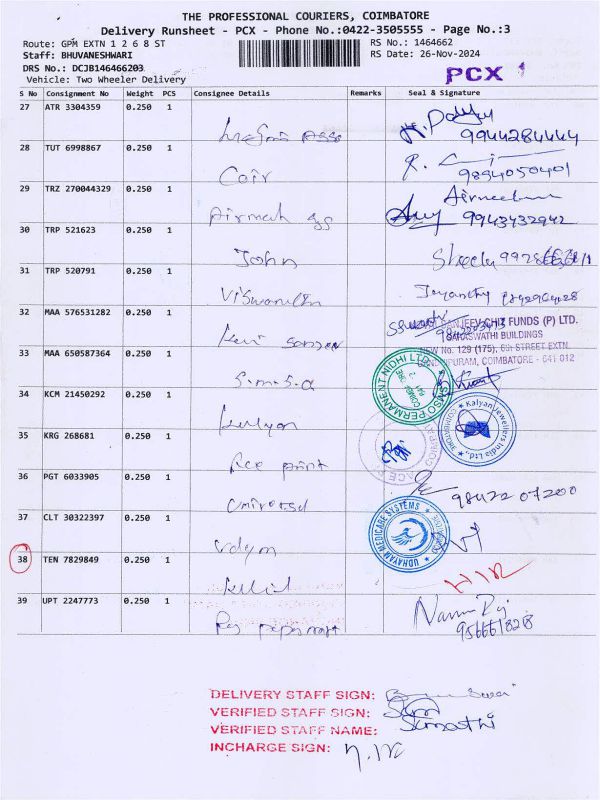 THE PROFESSIONAL COURIERS, COIMBATORE
Delivery Runsheet - PCX - Phone No.:0422-3505555 - Page No.:3
Route: GPM EXTN 1 2 6 8 ST
RS No.: 1464662
Staff: BHUVANESHWARI
RS Date: 26-Nov-2024
DRS No.: DCJB146466203
PCX 1
Vehicle: Two Wheeler Delivery
S No Consignment No Weight PCS Consignee Details Remarks Seal & Signature
27 ATR 3304359 0.250 1
9944284444
28 TUT 6998867 0.250 1
Coir 9894050401
29 TRZ 270044329 0.250 1
Airmech 9943432942
30 TRP 521623 0.250 1
John Sheela
31 TRP 520791 0.250 1
Viswanathn Jayanthy
32 MAA 576531282 0.250 1
SANJEEV CHIT FUNDS (P) LTD.
SARASWATHI BUILDINGS
No. 129 (175), 6th STREET EXTN.
PURAM, COIMBATORE - 641 012
33 MAA 650587364 0.250 1
S.m.s.o
PERMANENT NIDHI LTD.
COIMBATORE
34 KCM 21450292 0.250 1
Kalyan
Kalyan Jewellers India Ltd.,
COIMBATORE
35 KRG 268681 0.250 1
Ace print
36 PGT 6033905 0.250 1
Universal 98422 07200
37 CLT 30322397 0.250 1
Udyam
UDHAYAM MEDICARE SYSTEMS
38 TEN 7829849 0.250 1
39 UPT 2247773 0.250 1
Raj paper mart
9566618218
DELIVERY STAFF SIGN:
VERIFIED STAFF SIGN:
VERIFIED STAFF NAME: Sumathi
INCHARGE SIGN: